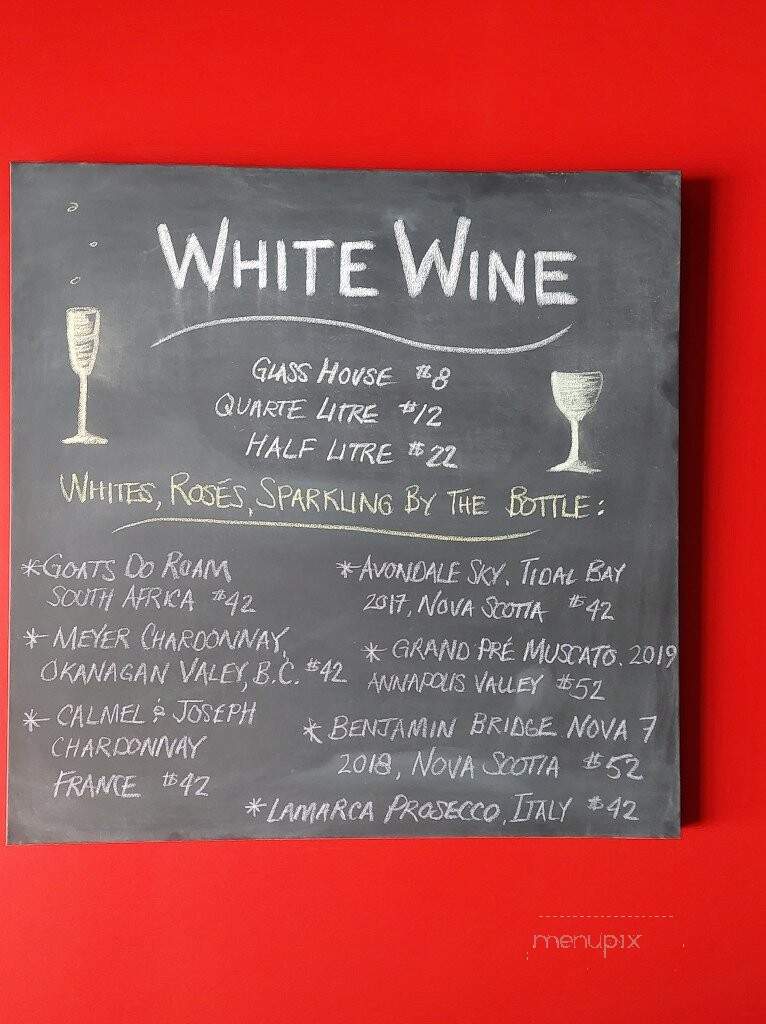 WHITE WINE
GLASS HOUSE $8
QUARTE LITRE $12
HALF LITRE $22
WHITES, ROSÉS, SPARKLING BY THE BOTTLE:
*GOATS DO ROAM
SOUTH AFRICA $42
* MEYER CHARDONNAY,
OKANAGAN VALEY, B.C. $42
* CALMEL & JOSEPH
CHARDONNAY
FRANCE $42
*AVONDALE SKY. TIDAL BAY
2017, NOVA SCOTIA $42
* GRAND PRÉ MUSCATO. 2019
ANNAPOLIS VALLEY $52
* BENJAMIN BRIDGE NOVA 7
2018, NOVA SCOTIA $52
*LAMARCA PROSECCO, ITALY $42
menupix